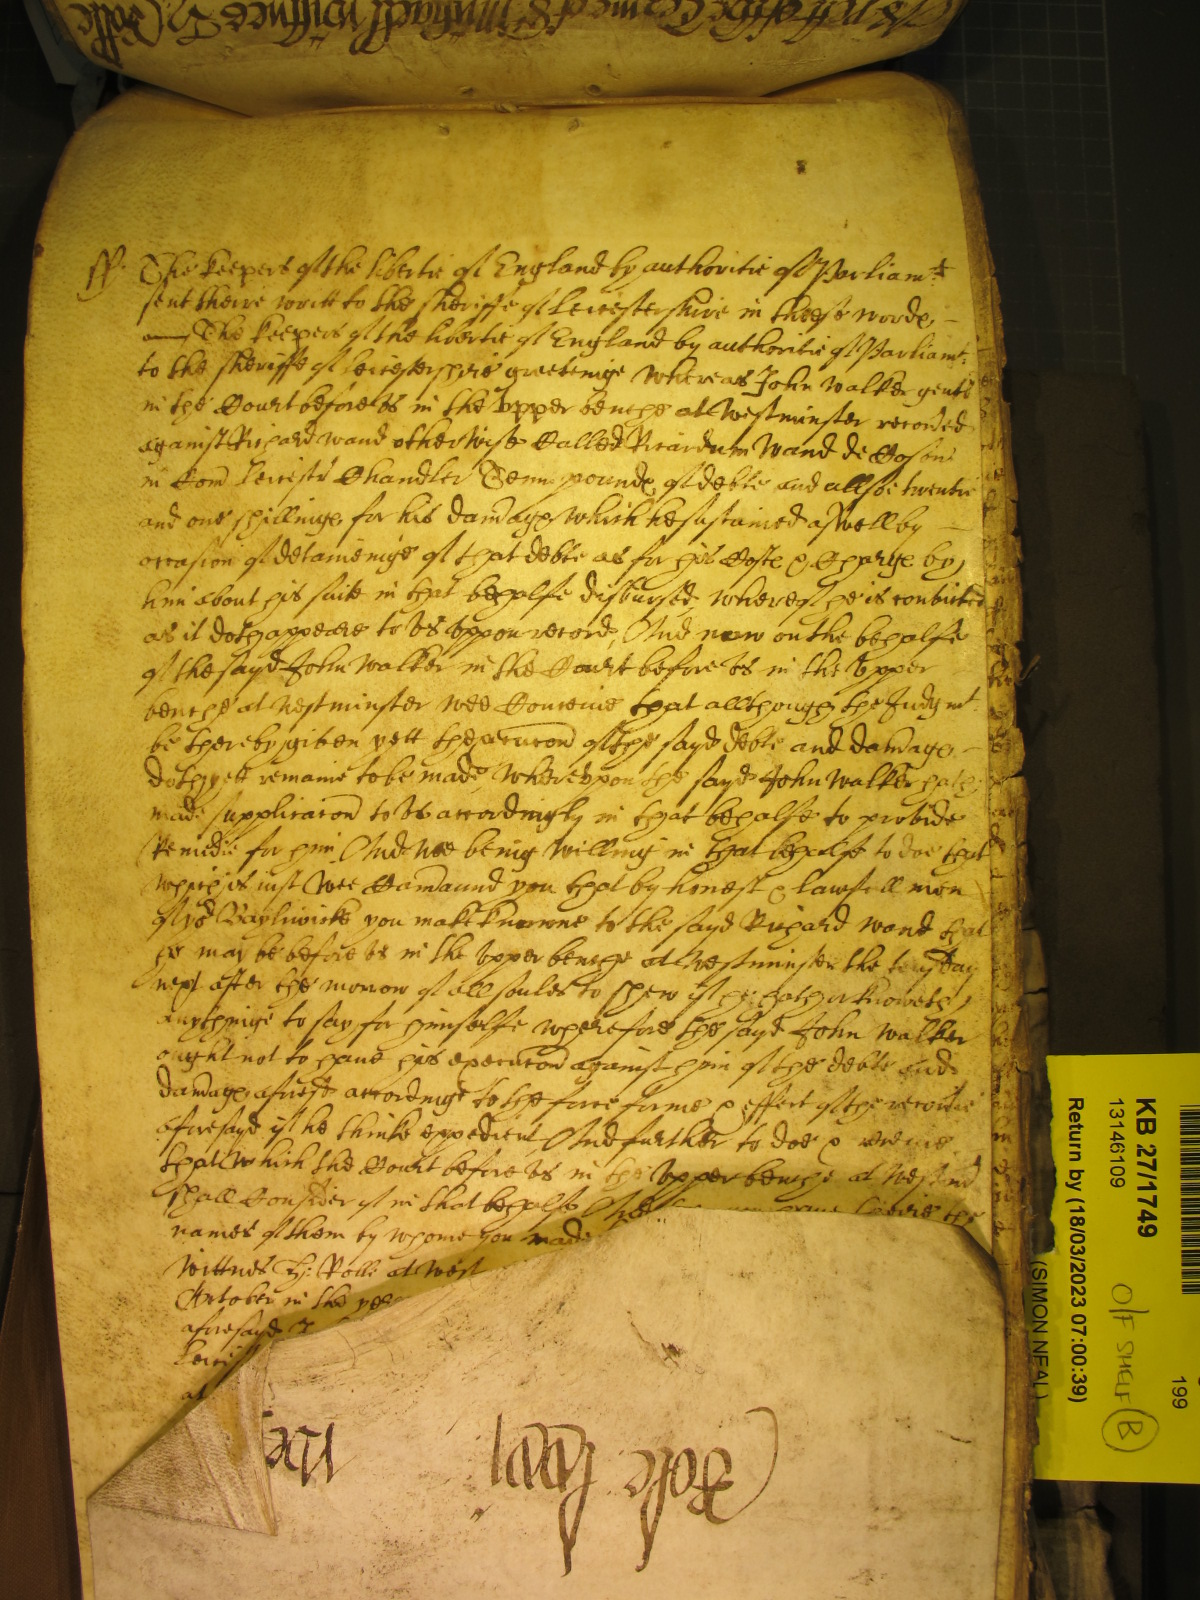 ss. The keepers of the libertie of England by authoritie of Parliamt
sent theire writt to the sheriffe of Leicestershire in theese words
The keepers of the libertie of England by authoritie of Parliamt
to the sheriffe of Leicestershire greetinge Whereas John Walker gent
in the Court before us in the upper benche at Westminster recorded
against Richard Wand otherwise Called Ricardum Wand de
in Com Leicestr Chandler Tenn pounds of debte and allsoe twentie
and one shillings for his damages which he sustained aswell by
occasion of deteininge of that debte as for his Costs & Charges by
him about his suite in that behalfe disbursed whereof he is convicted
as it doth appeare to us uppon record And now on the behalfe
of the sayd John Walker in the Court before us in the upper
benche at Westminster wee Conceive that allthough the Judgmt
be thereby given yett the execucon of the sayd debte and damages
doth yett remaine to be made whereupon the sayd John Walker hath
made supplicacon to us accordingly in that behalfe to provide
Remidie for him And wee being willing in that behalfe to doe that
which is just wee Comaund you that by honest & lawfull men
of yor Bayliwicke you make knowne to the sayd Richard Wand that
he may be before us in the upper benche at Westminster the day
next after the morrow of all soules to shew if he hath or knoweth
anythinge to say for himselfe wherefore the sayd John Walker
ought not to have his execucon against him of the debte and
damages aforesd accordinge to the force forme & effect of the recoverie
aforesayd if he thinke expedient And further to doe & receive
that which the Court before us in the upper benche at
shall Consider of in that behalfe And have there the
names of them by whome you made
Wittnes H: Rolle at West
October in the yeare
aforesayd
Leic
at
Rolle
KB 27/1749
13146109
Return by (18/03/2023 07:00:39)
(SIMON NEAL)
O/F SHELF B
199